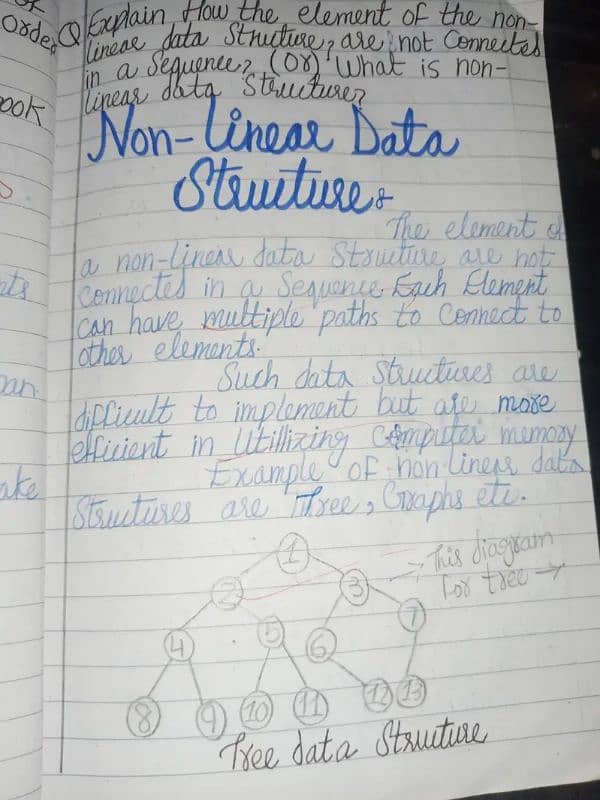 Order
Q Explain How the element of the non-
linear data Structure, are not Connected
in a Sequence? (Or) What is non-
linear data Structure?
ook
Non-Linear Data
Structure:-
The element of
a non-linear data Structure are not
connected in a Sequence. Each Element
can have multiple paths to Connect to
other elements.
Such data Structures are
difficult to implement but are more
efficient in Utillizing Computer memory
Example of non linear data
Structures are Tree, Graphs etc.
ake
1
=> This diagram
for tree →
2 3
4 5 6 7
8 9 10 11 12 13
Tree data Structure